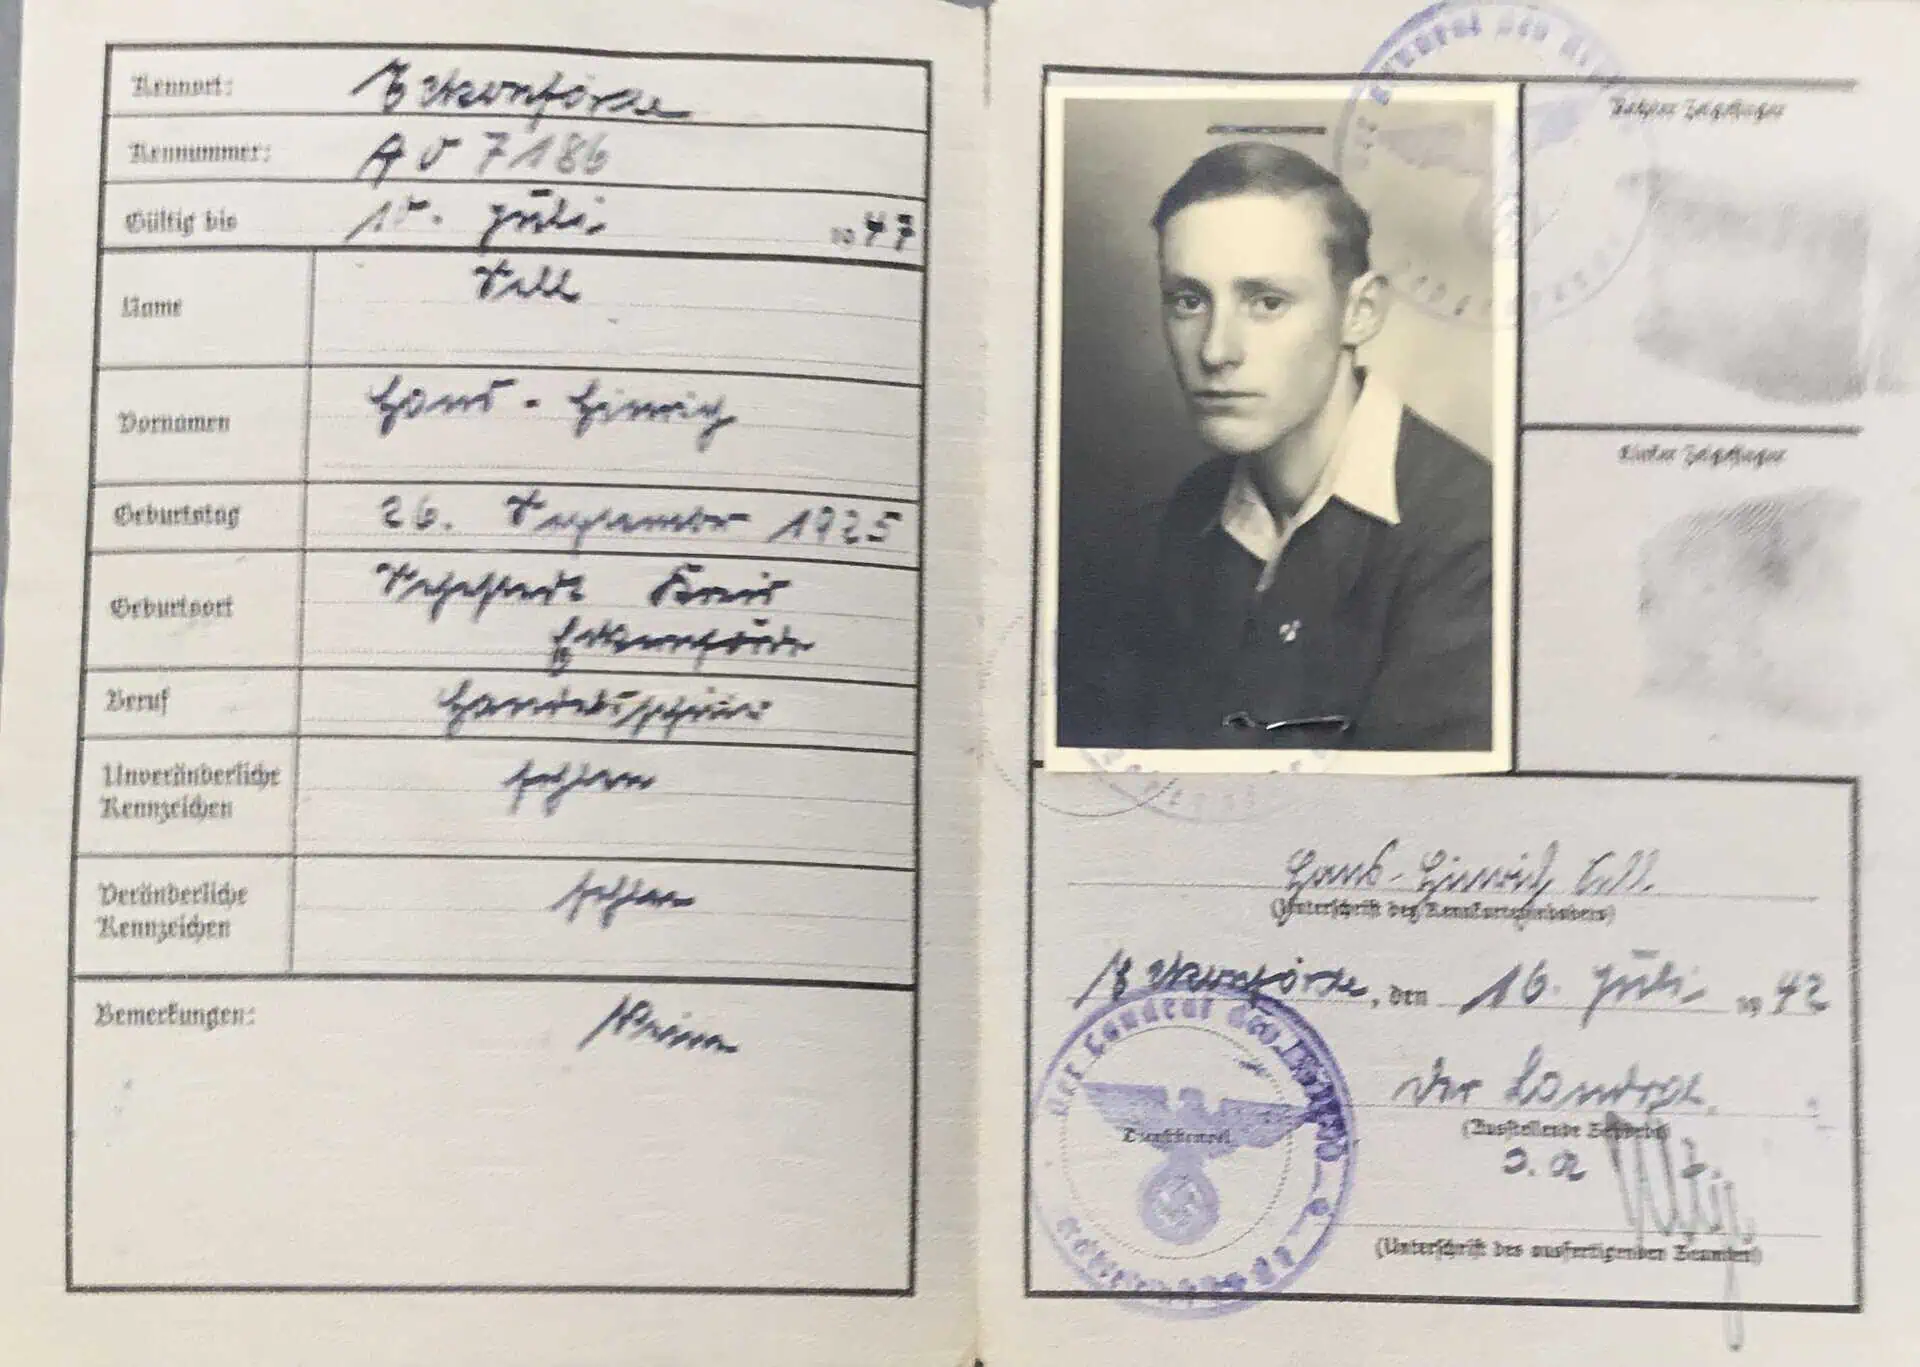 Kennort: Eckernförde
Kennummer: A 0 7186
Gültig bis 15. Juli 1947
Name
Sell
Vornamen
Hans-Hinrich
Geburtstag 26. September 1925
Geburtsort
Sehestedt Kreis
Eckernförde
Beruf Handelsschüler
Unveränderliche
Kennzeichen
fehlen
Veränderliche
Kennzeichen
fehlen
Bemerkungen: Keine
Rechter Zeigefinger
Linker Zeigefinger
Hans-Hinrich Sell.
(Unterschrift des Kennkarteninhabers)
Eckernförde, den 16. Juli 1942
Der Landrat
(Ausstellende Behörde)
Dienststempel
Der Landrat des Kreises
Eckernförde
J. A
(Unterschrift des ausfertigenden Beamten)